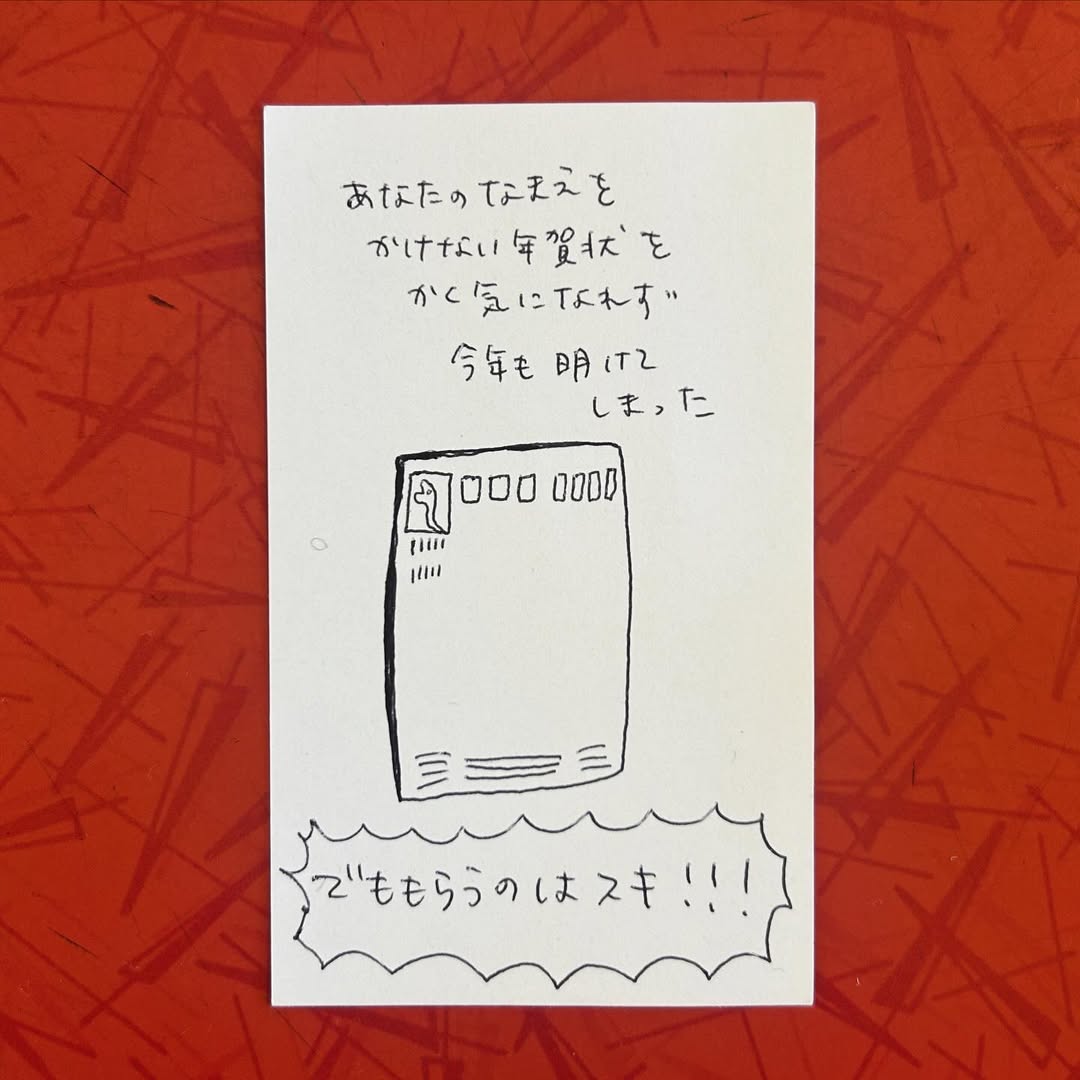 あなたのなまえを
かけない年賀状を
かく気になれず
今年も明けて
しまった
でももらうのはスキ!!!